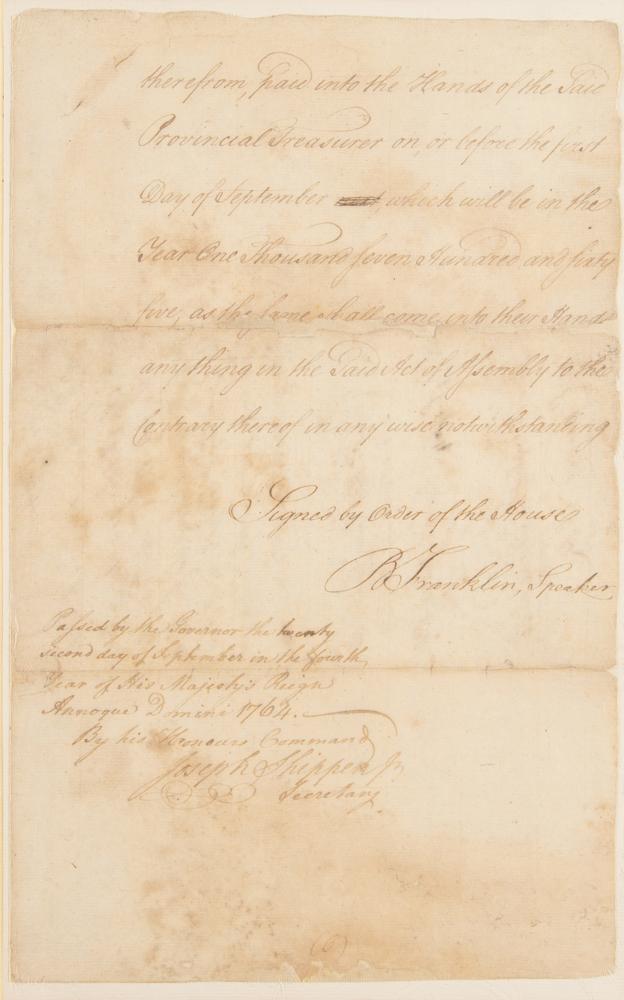 therefrom, paid into the Hands of the Said
Provincial Treasurer on, or before the first
Day of September which will be in the
Year One Thousand Seven Hundred and Sixty
five, as the same shall come into their Hands
any thing in the Said Act of Assembly to the
Contrary thereof in any wise notwithstanding
Signed by Order of the House
B Franklin, Speaker
Passed by the Governor the twenty
second day of September in the fourth
Year of His Majesty's Reign
Annoque Domini 1764.
By his Honours Command
Joseph Shippen Jr
Secretary